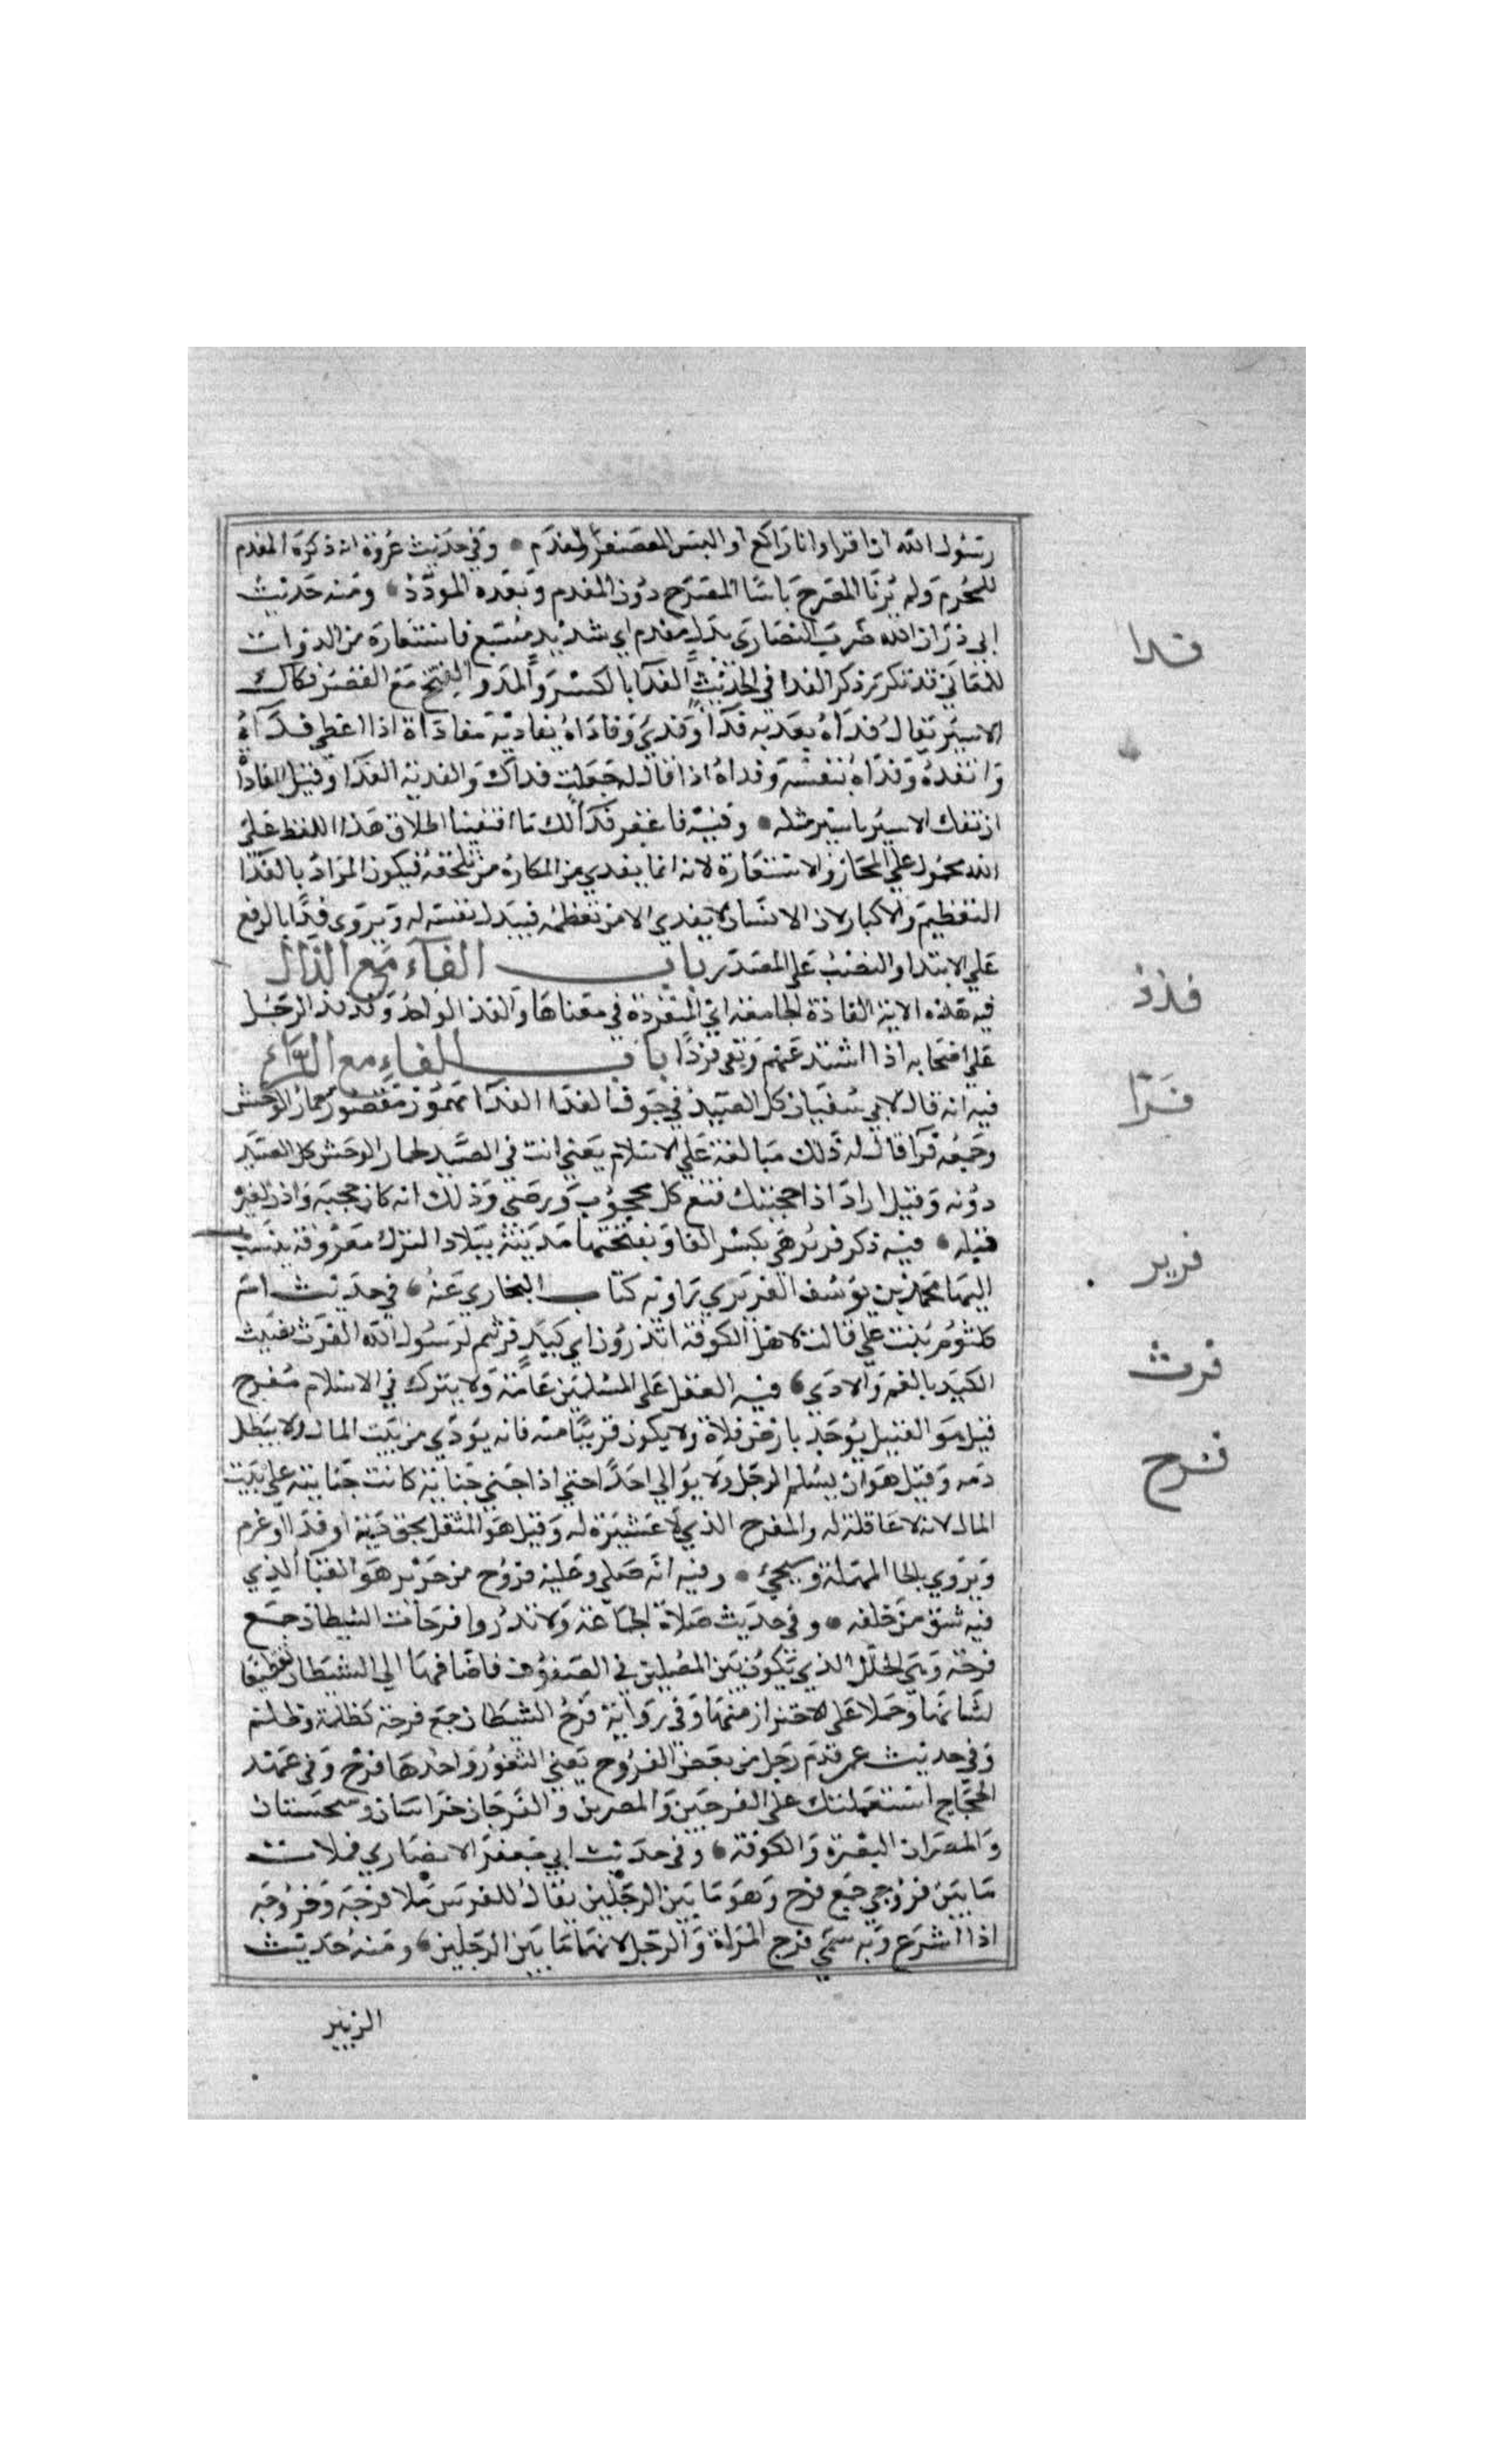 رسول الله ان اقرا وانا راكع او البس المعصفر المفدم وفي حديث عروة انه كره المفدم
للمحرم ولم ير بالمضرج باسا المضرج دون المفدم وبعده المورد ومنه حديث
ابي ذر ان الله ضرب النصارى بذل مفدم اي شديد مشبع فاستعاره من الذوات
للمعاني قد تكرر ذكر الفدا في الحديث الفدا بالكسر والمد والفتح مع القصر فكاك
الاسير يقال فداه يفديه فدا وفدي وفاداه يفاديه مفاداة اذا اعطي فداءه
وانقذه وفداه بنفسه وفداه اذا قال له جعلت فداك والفدية الفدا وقيل المفاداة
ان تفتك الاسير باسير مثله وفيه فاغفر فدا لك ما اقتفينا اطلاق هذا اللفظ على
الله محمول علي المجاز والاستعارة لانه انما يفدي من المكاره من تلحقه فيكون المراد بالفدا
التعظيم والاكبار لان الانسان لا يفدي الا من تعظمه فيبذل نفسه له ويروى فدا بالرفع
علي الابتدا والنصب على المصدر باب الفاء مع الذال
فيه هذه الاية الفاذة الجامعة اي المنفردة في معناها والفذ الواحد وفذ الرجل
على اصحابه اذا شذ عنهم وبقي فردا باب الفاء مع الراء
فيه انه قال لابي سفيان كل الصيد في جوف الفرا الفرا مهموز مقصور حمار الوحش
وجمعه فرا قال له ذلك مبالغة على الاسلام يعني انت في الصيد كحمار الوحش كل الصيد
دونه وقيل اراد اذا حجبتك قنع كل محجوب ورضي وذلك انه كان حجبه واذن لغيره
قبله فيه ذكر فربر هي بكسر الفا وبفتحها مدينة ببلاد الترك معروفة ينسب
اليها محمد بن يوسف الفربري راوية كتاب البخاري عنه في حديث ام
كلثوم بنت علي قالت لاهل الكوفة اتدرون اي كبد فرثتم لرسول الله الفرث تفتيت
الكبد بالغم والاذي فيه العقل على المسلمين عامة ولا يترك في الاسلام مفرج
قيل هو القتيل يوجد بارض فلاة ولا يكون قريبا منه فانه يودي من بيت المال ولا يبطل
دمه وقيل هو ان يسلم الرجل ولا يوالي احدا حتى اذا جني جناية كانت جنايته على بيت
المال لانه لا عاقلة له والمفرج الذي لا عشيرة له وقيل هو المثقل بحق دية او فدا او غرم
ويروي بالحا المهملة وسيجئ وفيه انه صلي وعليه فروج من حرير هو القبا الذي
فيه شق من خلفه وفي حديث صلاة الجماعة ولا تذروا فرجات الشيطان جمع
فرجة وهي الخلل الذي يكون بين المصلين في الصفوف فاضافها الى الشيطان تفظيعا
لشانها وحملا على الاحتراز منها وفي رواية فرج الشيطان جمع فرجة كظلمة وظلم
وفي حديث عمر قدم رجل من بعض الفروج يعني الثغور واحدها فرج وفي عهد
الحجاج استعملتك على الفرجين والمصرين والفرجان خراسان وسجستان
والمصران البصرة والكوفة وفي حديث ابي جعفر الانصاري فملات
ما بين فروجي جمع فرج وهو ما بين الرجلين يقال للفرس ملا فرجه وفروجه
اذا اشرع وبه سمي فرج المراة والرجل لانهما ما بين الرجلين ومنه حديث
الزبير
فدا
فذذ
فرا
فربر
فرث
فرج